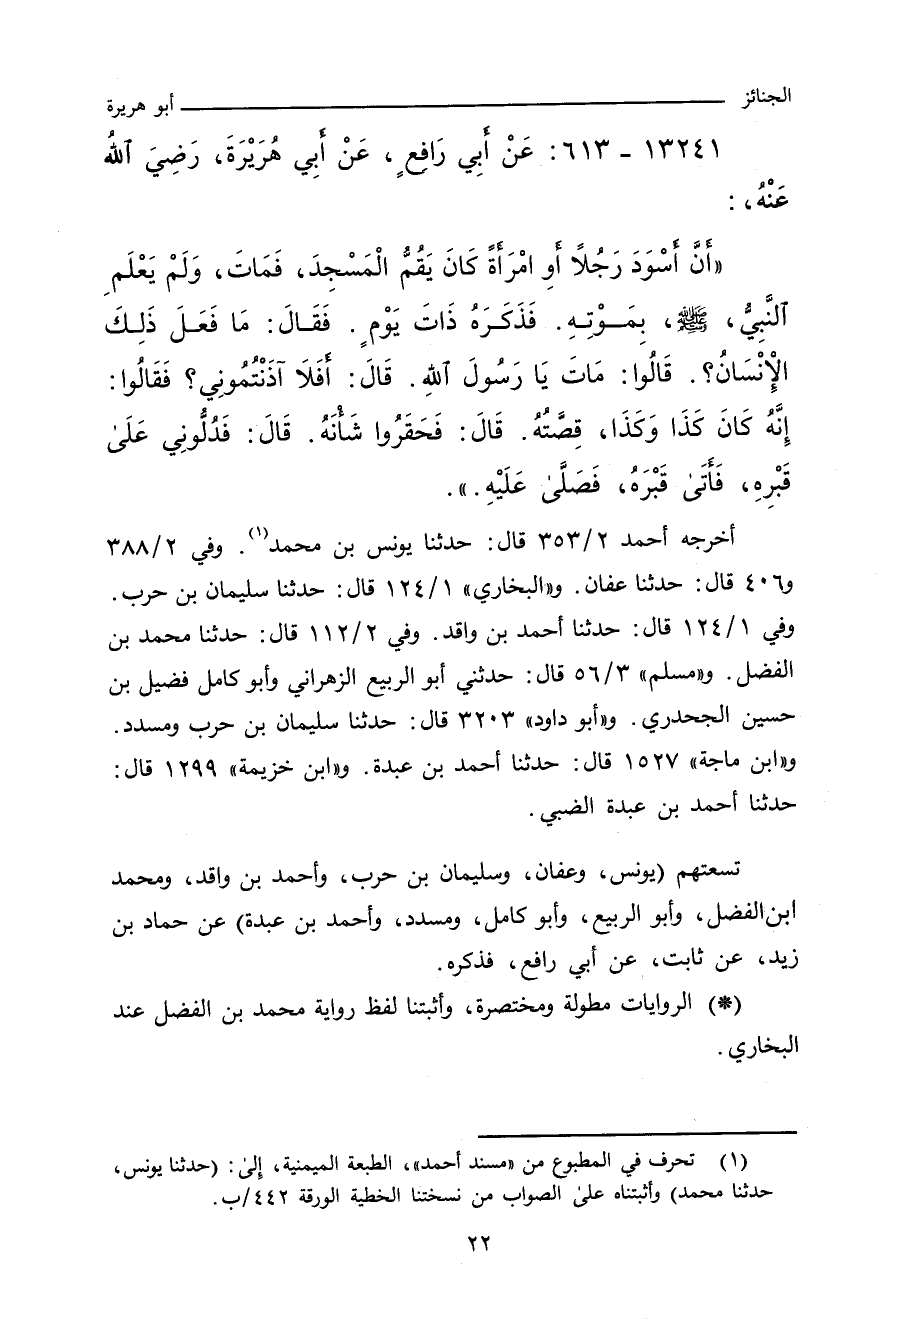 الجنائز ــــــــــــــــ أبو هريرة
١٣٢٤١ - ٦١٣: عَنْ أَبِي رَافِعٍ، عَنْ أَبِي هُرَيْرَةَ، رَضِيَ اللهُ
عَنْهُ، :
«أَنَّ أَسْوَدَ رَجُلاً أَوِ امْرَأَةً كَانَ يَقُمُّ الْمَسْجِدَ، فَمَاتَ، وَلَمْ يَعْلَمِ
النَّبِيُّ، ﷺ، بِمَوْتِهِ. فَذَكَرَهُ ذَاتَ يَوْمٍ. فَقَالَ: مَا فَعَلَ ذٰلِكَ
الْإِنْسَانُ؟. قَالُوا: مَاتَ يَا رَسُولَ اللهِ. قَالَ: أَفَلَا آذَنْتُمُونِي؟ فَقَالُوا:
إِنَّهُ كَانَ كَذَا وَكَذَا، قِصَّتُهُ. قَالَ: فَحَقَرُوا شَأْنَهُ. قَالَ: فَدُلُّونِي عَلَىٰ
قَبْرِهِ، فَأَتَىٰ قَبْرَهُ، فَصَلَّىٰ عَلَيْهِ.».
أخرجه أحمد ٣٥٣/٢ قال: حدثنا يونس بن محمد(١). وفي ٣٨٨/٢
و٤٠٦ قال: حدثنا عفان. و«البخاري» ١٢٤/١ قال: حدثنا سليمان بن حرب.
وفي ١٢٤/١ قال: حدثنا أحمد بن واقد. وفي ١١٢/٢ قال: حدثنا محمد بن
الفضل. و«مسلم» ٥٦/٣ قال: حدثني أبو الربيع الزهراني وأبو كامل فضيل بن
حسين الجحدري. و«أبو داود» ٣٢٠٣ قال: حدثنا سليمان بن حرب ومسدد.
و«ابن ماجة» ١٥٢٧ قال: حدثنا أحمد بن عبدة. و«ابن خزيمة» ١٢٩٩ قال:
حدثنا أحمد بن عبدة الضبي.
تسعتهم (يونس، وعفان، وسليمان بن حرب، وأحمد بن واقد، ومحمد
ابن الفضل، وأبو الربيع، وأبو كامل، ومسدد، وأحمد بن عبدة) عن حماد بن
زيد، عن ثابت، عن أبي رافع، فذكره.
(*) الروايات مطولة ومختصرة، وأثبتنا لفظ رواية محمد بن الفضل عند
البخاري.
(١) تحرف في المطبوع من «مسند أحمد»، الطبعة الميمنية، إلىٰ: (حدثنا يونس،
حدثنا محمد) وأثبتناه علىٰ الصواب من نسختنا الخطية الورقة ٤٤٢/ب.
٢٢